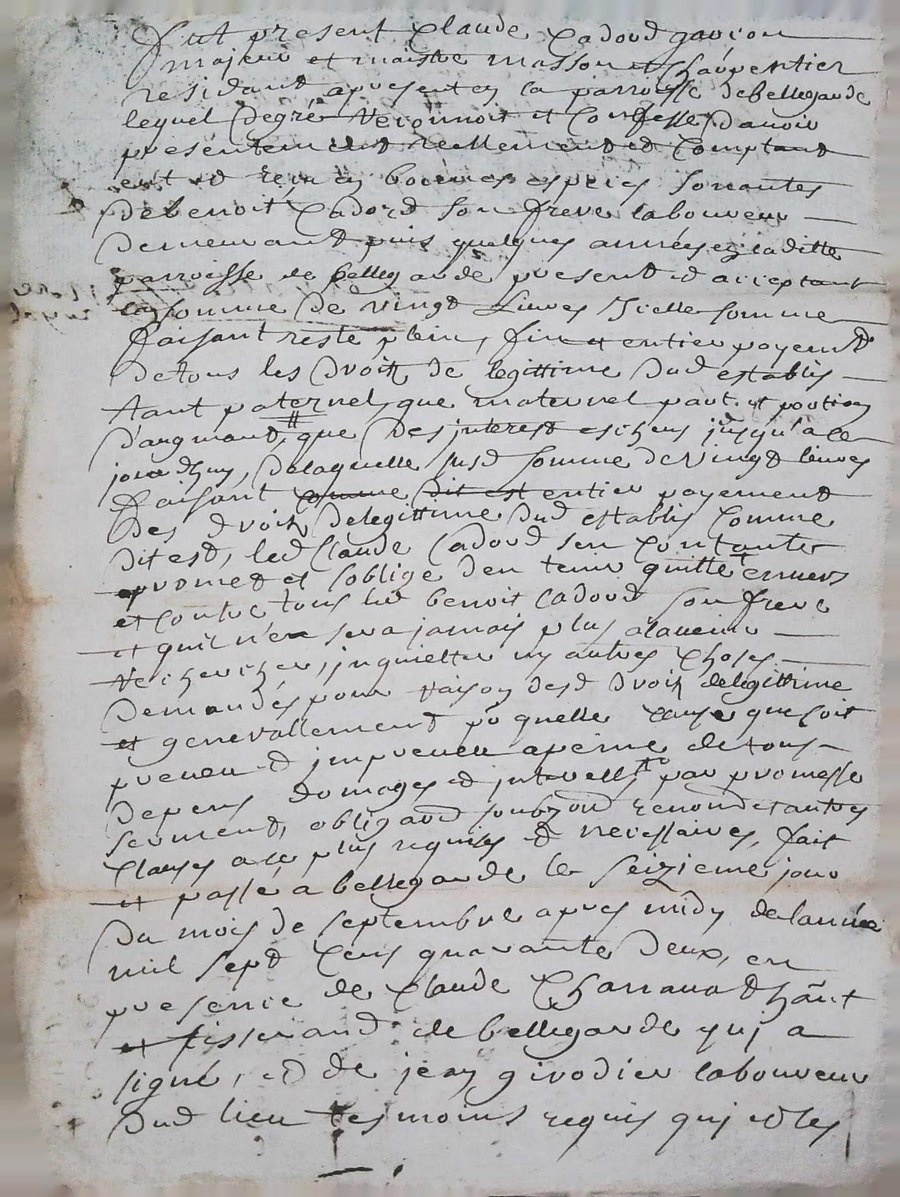 fut present Claude Cadoud garcon
majeur et maistre masson et charpentier
residant a present en la parroisse de bellegarde
lequel de gré reconnoit et confesse d'avoir
presentement reellement et comptant
eut et receu en bonnes especes sonnantes
de benoit Cadord son frere laboureur
demeurant puis quelques années en laditte
parroisse de bellegarde present et acceptant
la somme de vingt Livres Jcelle somme
faisant reste plein, fin et entier payemt
de tous les droitz de legittime dud establis
tant paternel, que maternel part et portion
d'augmant, que des jnterest escheus jusqu'a ce
jourdhuy, de laquelle susd somme de vingt livres
faisant comme dit est entier payement
des droitz de legittime dud establis comme
dit est, led Claude Cadoud s'en contante
promet et s'oblige d'en tenir quitte envers
et contre tous led benoit Cadoud son frere
et qu'il n'en sera jamais plus a l'avenir
recherchés, jnquietter ny autres choses
demandés pour raison desd droitz de legittime
et generallement po quelle cause que soit
preveu et jmpreveu a peine de tous
depens domages et jnterests par promesse
serment, obligaon soubzon renonon et autres
clauses a ce plus requises et necessaires, fait
et passé a bellegarde le seizieme jour
du mois de septembre apres midy de l'année
mil sept cens quarante deux, en
presence de Claude
et tisserand de bellegarde qui a
signé, et de jean girodier laboureur
dud lieu tesmoins requis qui et les